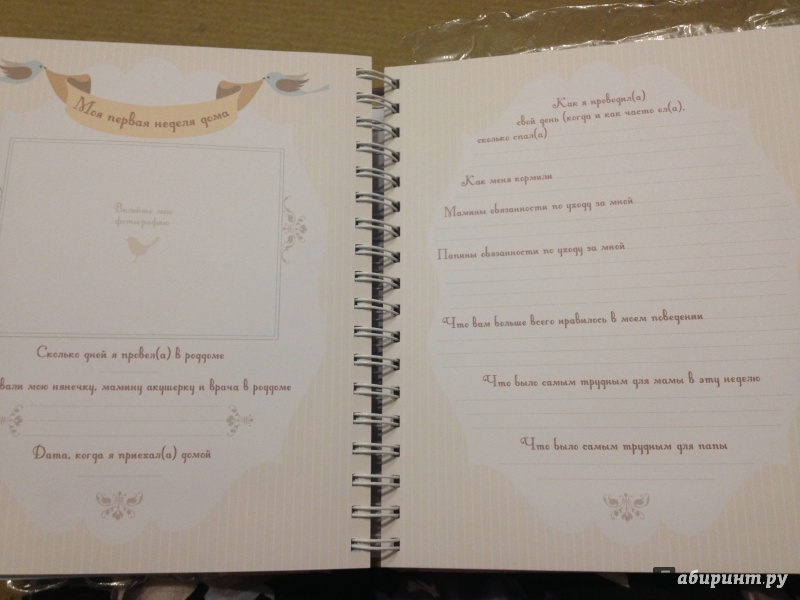 Моя первая неделя дома
Вклейте мою
фотографию
Сколько дней я провел(а) в роддоме
вали мою нянечку, мамину акушерку и врача в роддоме
Дата, когда я приехал(а) домой
Как я проводил(а)
свой день (когда и как часто ел(а),
сколько спал(а)
Как меня кормили
Мамины обязанности по уходу за мной
Папины обязанности по уходу за мной
Что вам больше всего нравилось в моем поведении
Что было самым трудным для мамы в эту неделю
Что было самым трудным для папы
абиринт.ру